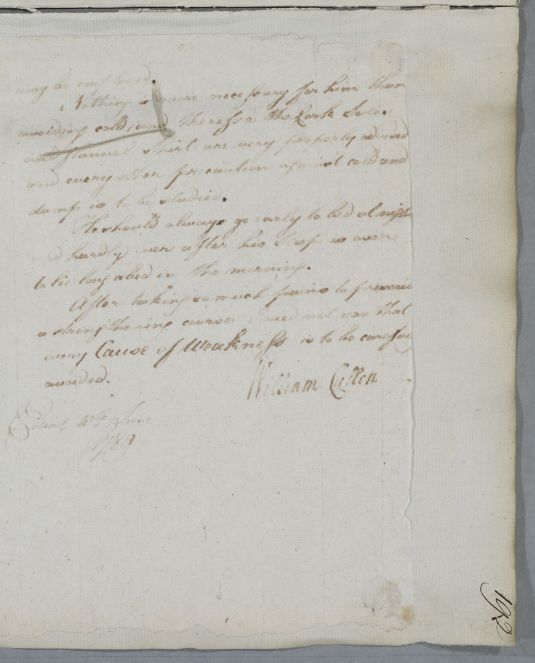 may be employed.
Nothing is more necessary for him than
avoiding cold, and therefore the Cork Soles
and flannel Shirt are very properly advised
and every other precaution against cold and
damp is to be studied.
He should always go early to bed at night
and hardly ever after his Sleep is over
to lie long abed in the morning.
After taking so much pains to procure
a strengthening course I need not say that
every Cause of Weakness is to be carefully
avoided.
William Cullen
Edinr 4th June